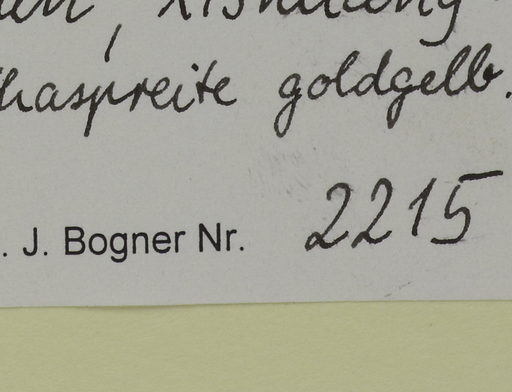 haspreite goldgelb.
. J. Bogner Nr. 2215